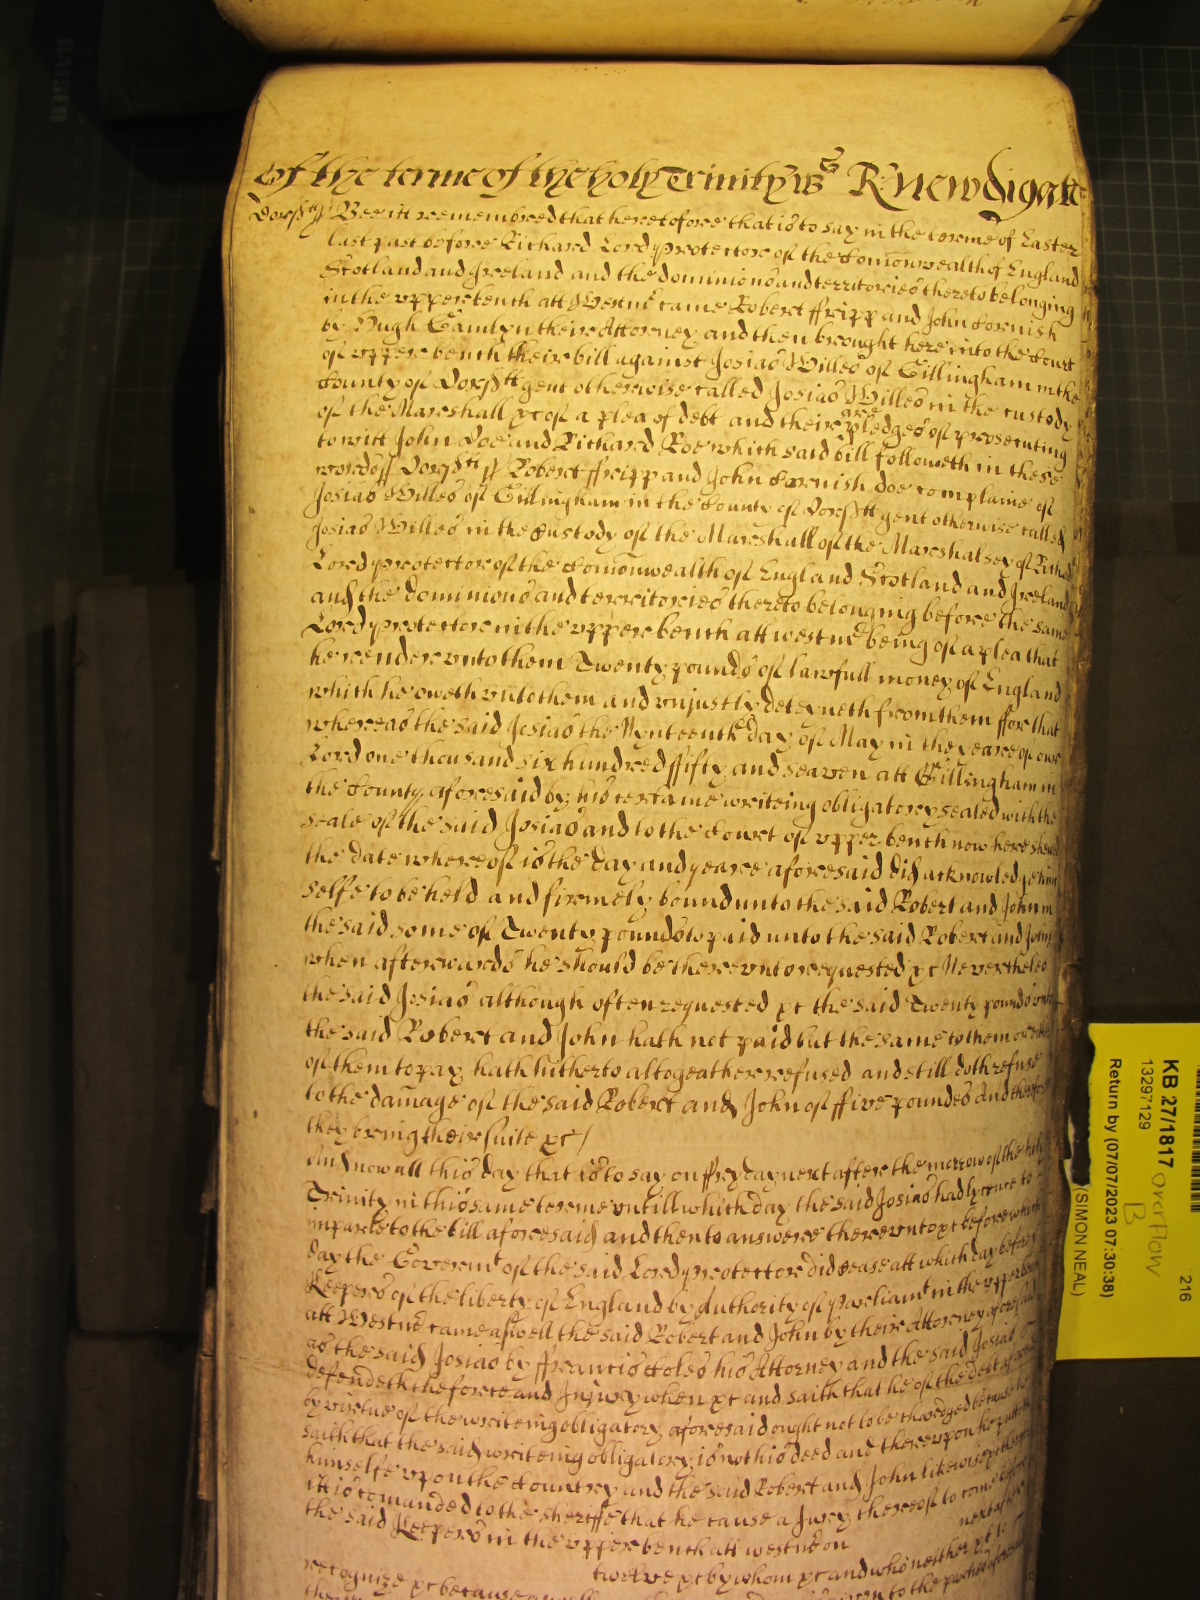 Of the terme of the holy Trinity 1659 R: Newdigate
Dorsstt ss Bee itt remembred that heretofore that is to say in the terme of Easter
last past before Richard Lord protector of the Comonwealth of England
Scotland and Ireland and the dominions and territories thereto belonging
in the vpper bench att Westmr came Robert ffripp and John Cornish
by Hugh Camlyn their Attorney and then brought here into the Court
of vpper bench their bill against Josias Willes of Gillingham in the
County of Dorsstt gent otherwise called Josias Willes in the custody
of the Marshall &c of a plea of debt and their are pledges of prosecuting
to witt John Doe and Richard Roe which said bill followeth in these
words ss Dorsstt ss Robert ffripp and John Cornish doe complaine of
Josias Willes of Gillingham in the County of Dorsstt gent otherwise called
Josias Willes in the Custody of the Marshall of the Marshalsey of Richard
Lord protector of the Comonwealth of England Scotland and Ireland
and the dominions and territories thereto belonging before the same
Lord protector in the vpper bench att westmr being of a plea that
he render vnto them Twenty pounds of lawfull money of England
which he oweth vnto them and vnjustly deteyneth from them ffor that
whereas the said Josias the Nynteenth day of May in the yeare of our
Lord one thousand six hundred ffifty and seaven att Gillingham in
the County aforesaid by his certaine writeing obligatory sealed with the
seale of the said Josias and to the Court of vpper bench now here shewed
the date whereof is the day and yeare aforesaid did acknowledge him
selfe to be held and firmely bound unto the said Robert and John in
the said some of Twenty pounds to paid unto the said Robert and John
when afterwards he should be therevnto requested &c Neverthelesse
the said Josias although often requested &c the said Twenty pounds vnto
the said Robert and John hath not paid but the same to them or either
of them to pay hath hitherto altogeather refused and still doth refuse
to the damage of the said Robert and John of ffive poundes And therefore
they bring their suite &c /
And now att this day that is to say on ffryday next after the morrow of the holy
Trinity in this same terme vntill which day the said Josias had lycence to
imparle to the bill aforesaid and then to answere therevnto &c before which
day the Governmt of the said Lord protector did cease att which day before
Keepers of the liberty of England by Authority of Parliamt in the vpper bench
att Westmr came aswell the said Robert and John by their Attorney aforesaid
as the said Josias by ffrancis Coles his Attorney and the said Josias
defendeth the force and Injury when &c and saith that he of the debt aforesaid
by virtue of the writeing obligatory aforesaid ought not to be chardged because he
saith that the said writeing obligatory is not his deed and therevpon he putteth
himselfe vpon the Country and the said Robert and John likewise &c therefore
itt is comanded to the sheriffe that he cause a Jury thereof to come before
the said Keepers in the vpper bench att westmr on next after
twelve &c by whom &c and who neither &c to
recognize &c because aswell to the parties aforesaid
KB 27/1817 overflow
B
13297129
Return by (07/07/2023 07:30:38)
(SIMON NEAL)
216